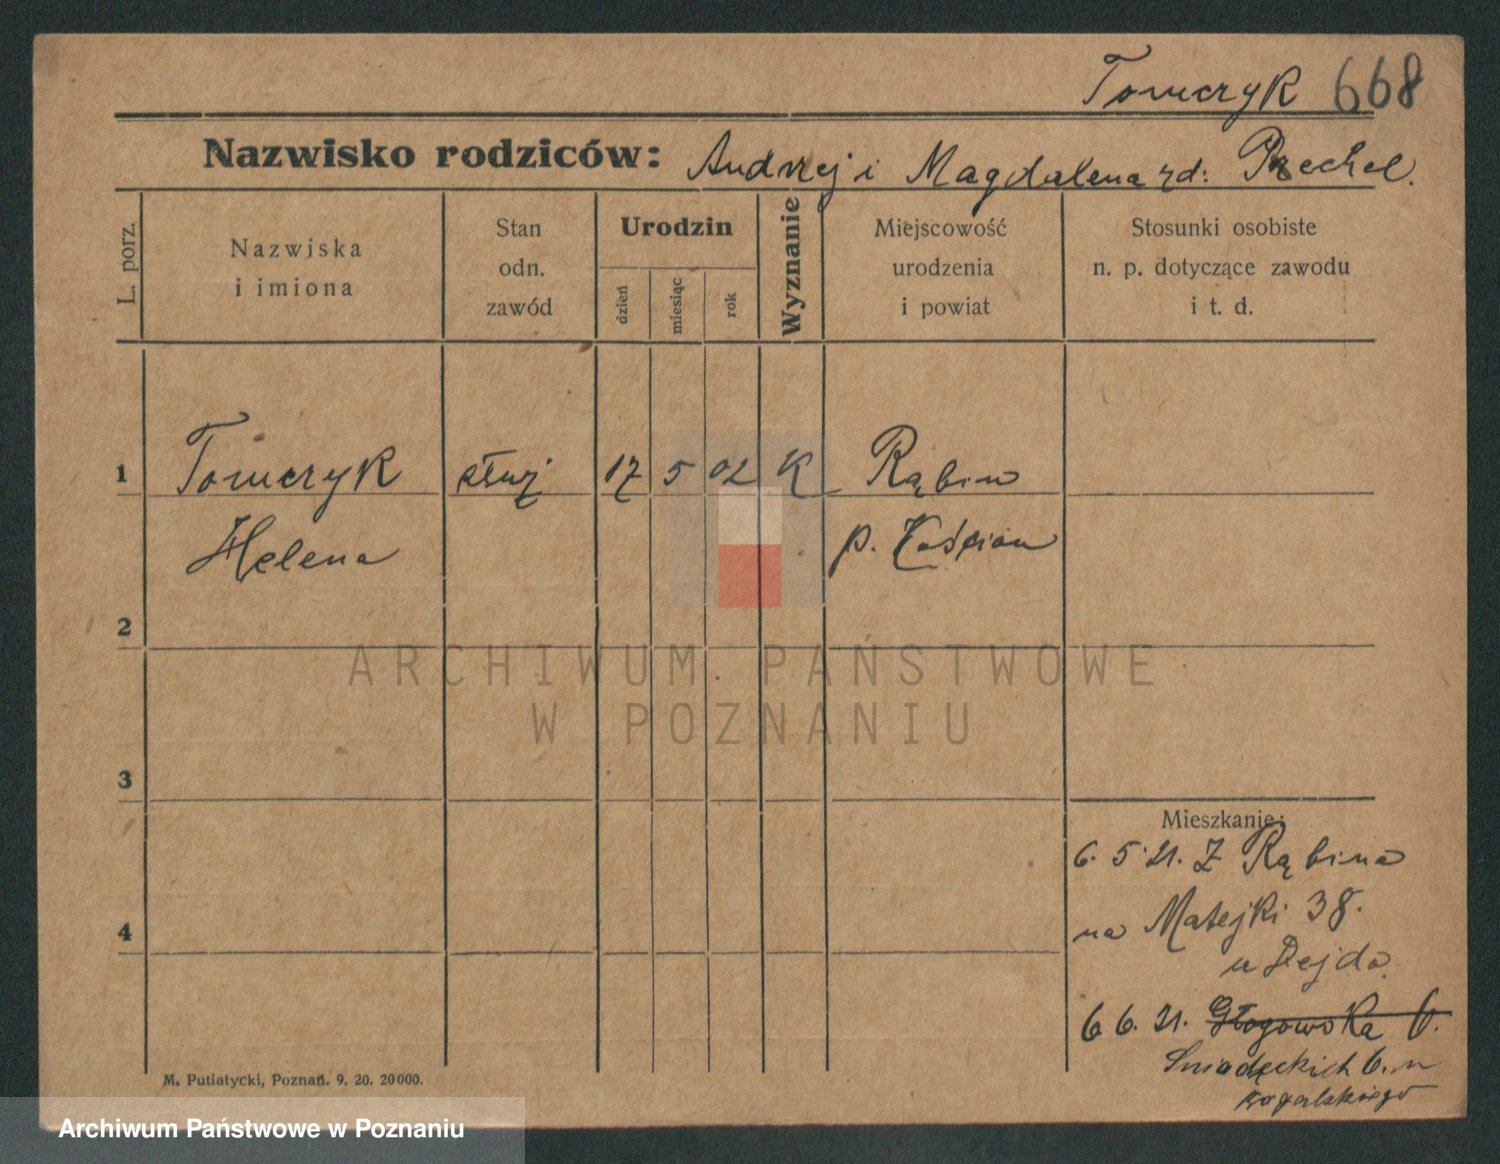 Tomczyk 668
Nazwisko rodziców: Andrzej i Magdalena rd:
L. porz.
Nazwiska
i imiona
Stan
odn.
zawód
Urodzin
dzień
miesiąc
rok
Wyznanie
Miejscowość
urodzenia
i powiat
Stosunki osobiste
n. p. dotyczące zawodu
i t. d.
1 Tomczyk służ 17 5 02 K Rąbin
Helena p. Kościan
2
3
4
Mieszkanie:
6. 5. 21. Z Rąbina
na Matejki 38.
u Dejda
6 6. 21. Głogowska 6.
Sniadeckich 6. u
M. Putiatycki, Poznań. 9. 20. 20000.
ARCHIWUM PAŃSTWOWE
W POZNANIU
Archiwum Państwowe w Poznaniu